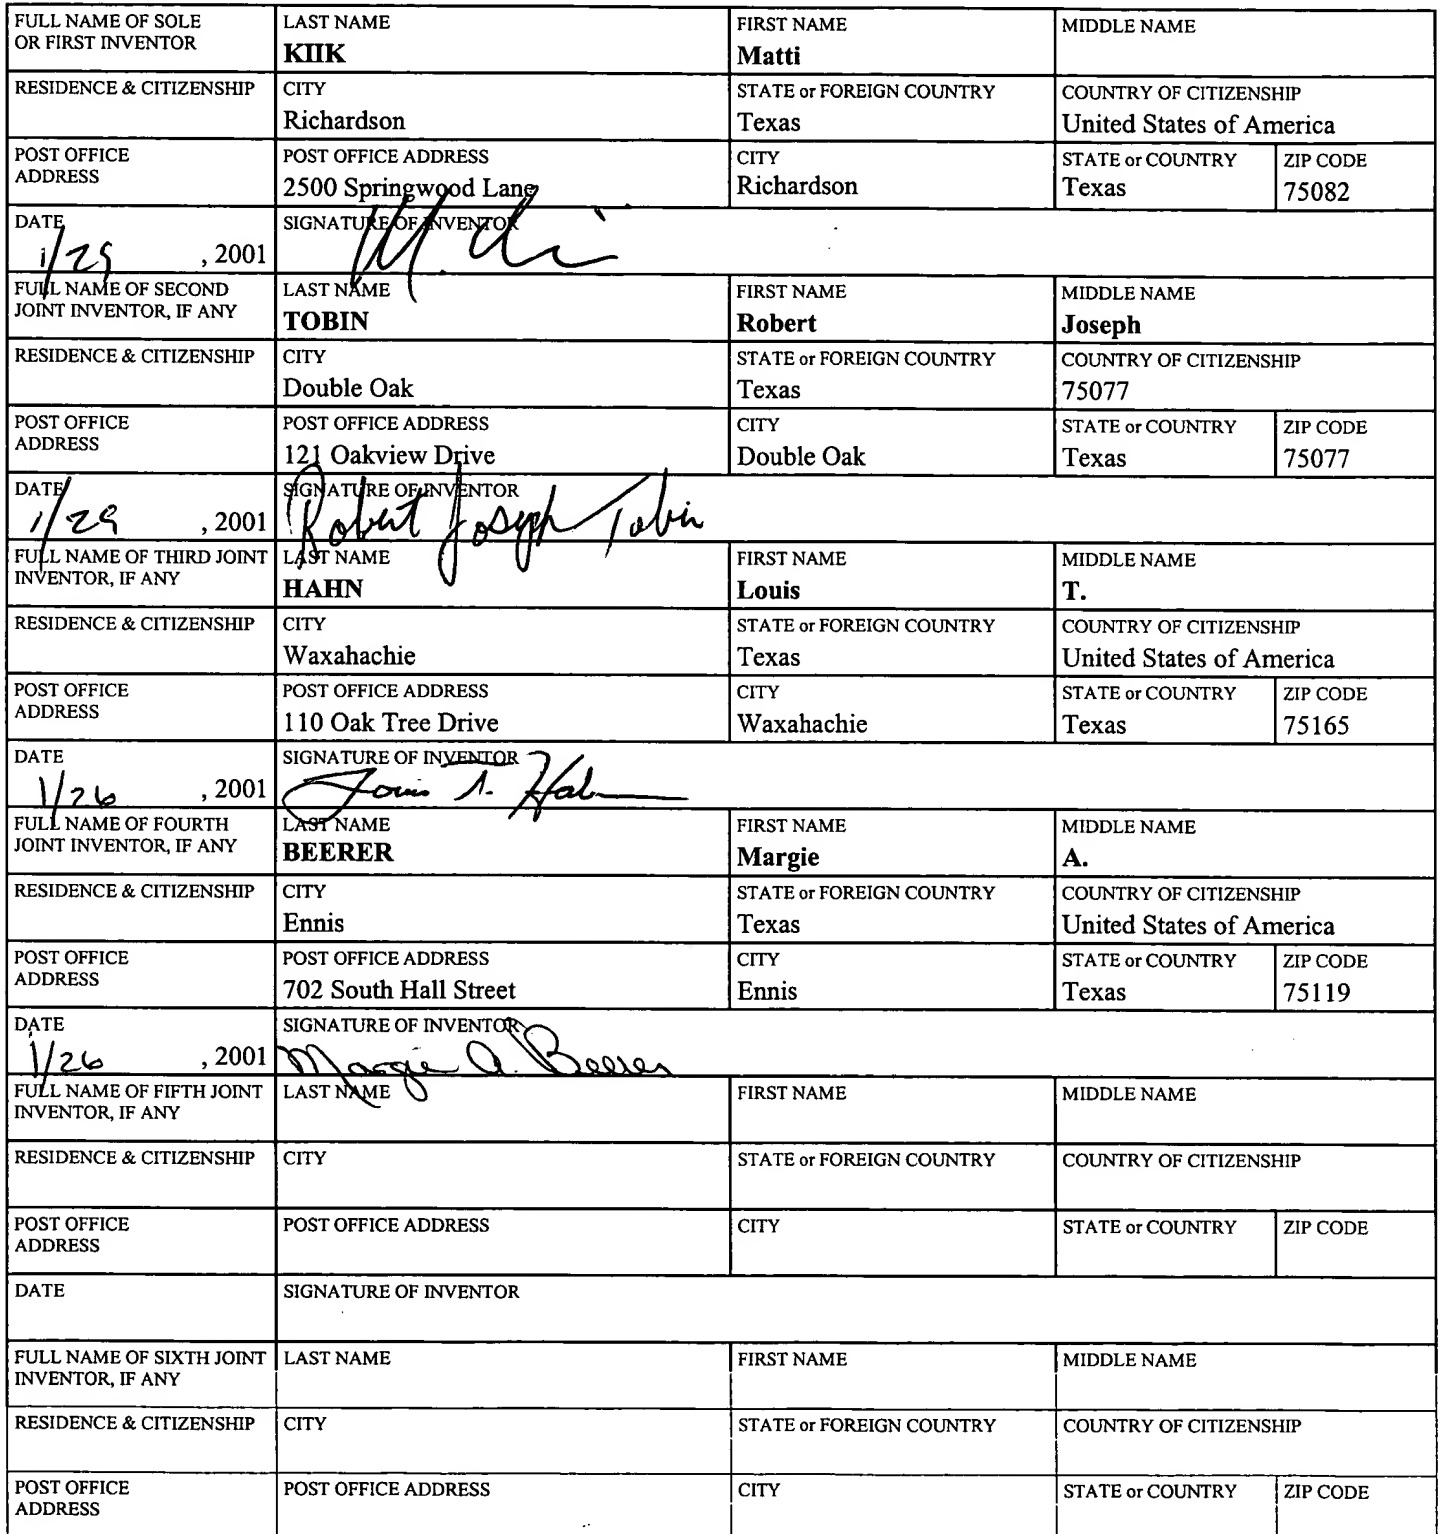 FULL NAME OF SOLE OR FIRST INVENTOR LAST NAME KIIK FIRST NAME Matti MIDDLE NAME
RESIDENCE & CITIZENSHIP CITY Richardson STATE or FOREIGN COUNTRY Texas COUNTRY OF CITIZENSHIP United States of America
POST OFFICE ADDRESS POST OFFICE ADDRESS 2500 Springwood Lane CITY Richardson STATE or COUNTRY Texas ZIP CODE 75082
DATE 1/29 , 2001 SIGNATURE OF INVENTOR
FULL NAME OF SECOND JOINT INVENTOR, IF ANY LAST NAME TOBIN FIRST NAME Robert MIDDLE NAME Joseph
RESIDENCE & CITIZENSHIP CITY Double Oak STATE or FOREIGN COUNTRY Texas COUNTRY OF CITIZENSHIP 75077
POST OFFICE ADDRESS POST OFFICE ADDRESS 121 Oakview Drive CITY Double Oak STATE or COUNTRY Texas ZIP CODE 75077
DATE 1/29 , 2001 SIGNATURE OF INVENTOR Robert Joseph Tobin
FULL NAME OF THIRD JOINT INVENTOR, IF ANY LAST NAME HAHN FIRST NAME Louis MIDDLE NAME T.
RESIDENCE & CITIZENSHIP CITY Waxahachie STATE or FOREIGN COUNTRY Texas COUNTRY OF CITIZENSHIP United States of America
POST OFFICE ADDRESS POST OFFICE ADDRESS 110 Oak Tree Drive CITY Waxahachie STATE or COUNTRY Texas ZIP CODE 75165
DATE 1/26 , 2001 SIGNATURE OF INVENTOR Louis T. Hahn
FULL NAME OF FOURTH JOINT INVENTOR, IF ANY LAST NAME BEERER FIRST NAME Margie MIDDLE NAME A.
RESIDENCE & CITIZENSHIP CITY Ennis STATE or FOREIGN COUNTRY Texas COUNTRY OF CITIZENSHIP United States of America
POST OFFICE ADDRESS POST OFFICE ADDRESS 702 South Hall Street CITY Ennis STATE or COUNTRY Texas ZIP CODE 75119
DATE 1/26 , 2001 SIGNATURE OF INVENTOR Margie A. Beerer
FULL NAME OF FIFTH JOINT INVENTOR, IF ANY LAST NAME FIRST NAME MIDDLE NAME
RESIDENCE & CITIZENSHIP CITY STATE or FOREIGN COUNTRY COUNTRY OF CITIZENSHIP
POST OFFICE ADDRESS POST OFFICE ADDRESS CITY STATE or COUNTRY ZIP CODE
DATE SIGNATURE OF INVENTOR
FULL NAME OF SIXTH JOINT INVENTOR, IF ANY LAST NAME FIRST NAME MIDDLE NAME
RESIDENCE & CITIZENSHIP CITY STATE or FOREIGN COUNTRY COUNTRY OF CITIZENSHIP
POST OFFICE ADDRESS POST OFFICE ADDRESS CITY STATE or COUNTRY ZIP CODE